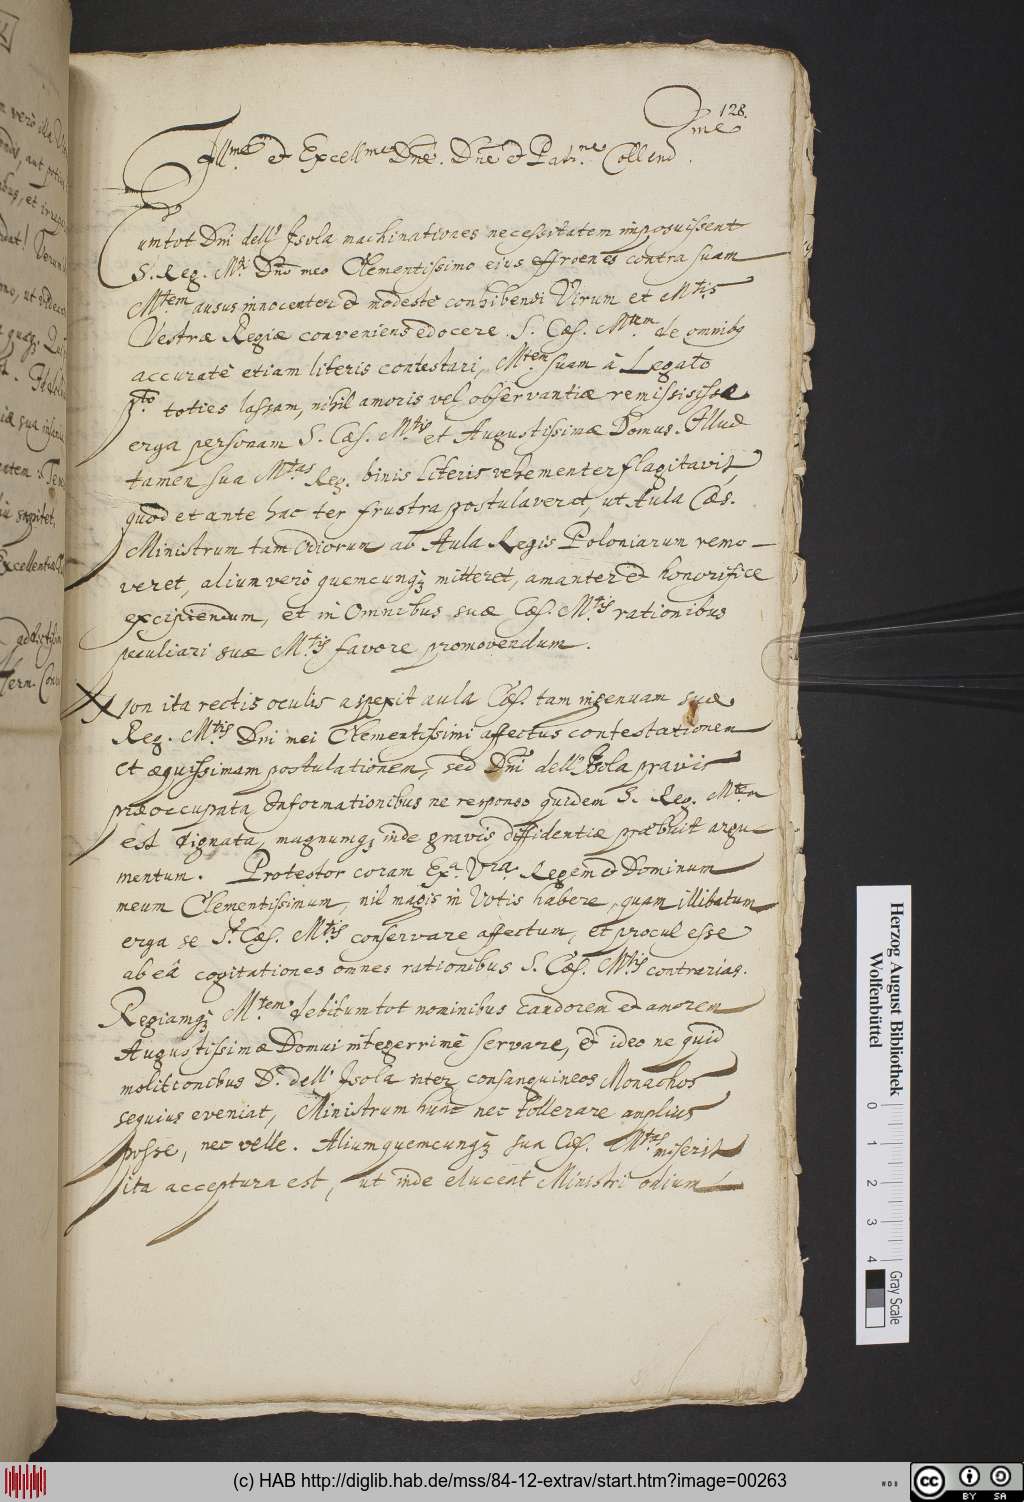 128.
Illme et Excellme Dne. Dne et Patrne Collend.
me
Cum tot Dni dell' Isola machinationes necessitatem imposuissent
S. Reg. Mti Dno meo Clementissimo eius effroenes contra suam
Mtem ausus innocenter et modeste conhibendi Virum et Mtis
Vestræ Regiæ conveniens edocere S. Cæs. Mtem de omnibq
accuratè etiam literis contestari, Mtem suam à Legato
pto toties lassam, nihil amoris vel observantiæ remisisse
erga personam S. Cæs. Mtis et Augustissimæ Domus. Illud
tamen sua Mtas Reg. binis literis vehementer flagitavit,
quod et ante hac ter frustra postulaverat, ut Aula Cæs.
Ministrum tam Odiorum ab Aula Regis Poloniarum remo-
veret, alium verò quemcunqz mitteret, amanter et honorifice
excipiendum, et in Omnibus suæ Cæs. Mtis rationibus
peculiari suæ Mtis favore promovendum.
Non ita rectis oculis aspexit aula Cæs. tam ingenuam suæ
Reg. Mtis Dni mei Clementissimi affectus contestationem
et æquissimam postulationem, sed Dni dell' Isola praviis
præoccupata Informationibus ne responso quidem S. Reg. Mtem
est dignata, magnumqz inde gravis diffidentiæ præbuit argu-
mentum. Protestor coram Exa Vra Regem et Dominum
meum Clementissimum, nil magis in Votis habere, quam illibatum
erga se S. Cæs. Mtis conservare affectum, et procul esse
ab eâ cogitationes omnes rationibus S. Cæs. Mtis contrarias.
Regiamqz Mtem debitum tot nominibus candorem et amorem
Augustissimæ Domui integerrimè servare, et ideo ne quid
molitionibus D. dell' Isola inter consanguineos Monachos
sequius eveniat, Ministrum hunc nec tollerare amplius
posse, nec velle. Alium quemcunqz sua Cæs. Mtas miserit
ita acceptura est, ut inde eluceat Ministri odium
Herzog August Bibliothek
Wolfenbüttel
0 1 2 3 4
Gray Scale
(c) HAB http://diglib.hab.de/mss/84-12-extrav/start.htm?image=00263
cc BY SA